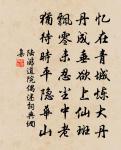 忆在青城炼大丹
丹成垂欲上仙班
飘零未忍尘中老
犹待时平隐华山
陆游道院偶述词典网
集